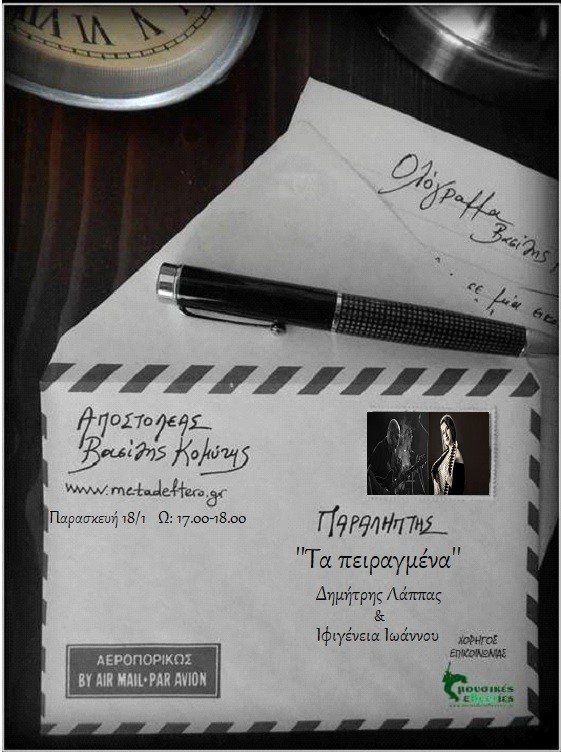 Ολόγραμμα
Βασίλης
σε μία
ΑΠΟΣΤΟΛΕΑΣ
Βασίλης Κομύτης
www.metadeftero.gr
Παρασκευή 18/1 Ω: 17.00-18.00
ΠΑΡΑΛΗΠΤΗΣ
"Τα πειραγμένα"
Δημήτρης Λάππας
&
Ιφιγένεια Ιωάννου
ΧΟΡΗΓΟΣ
ΕΠΙΚΟΙΝΩΝΙΑΣ
μουσικές
ΑΕΡΟΠΟΡΙΚΩΣ
BY AIR MAIL·PAR AVION